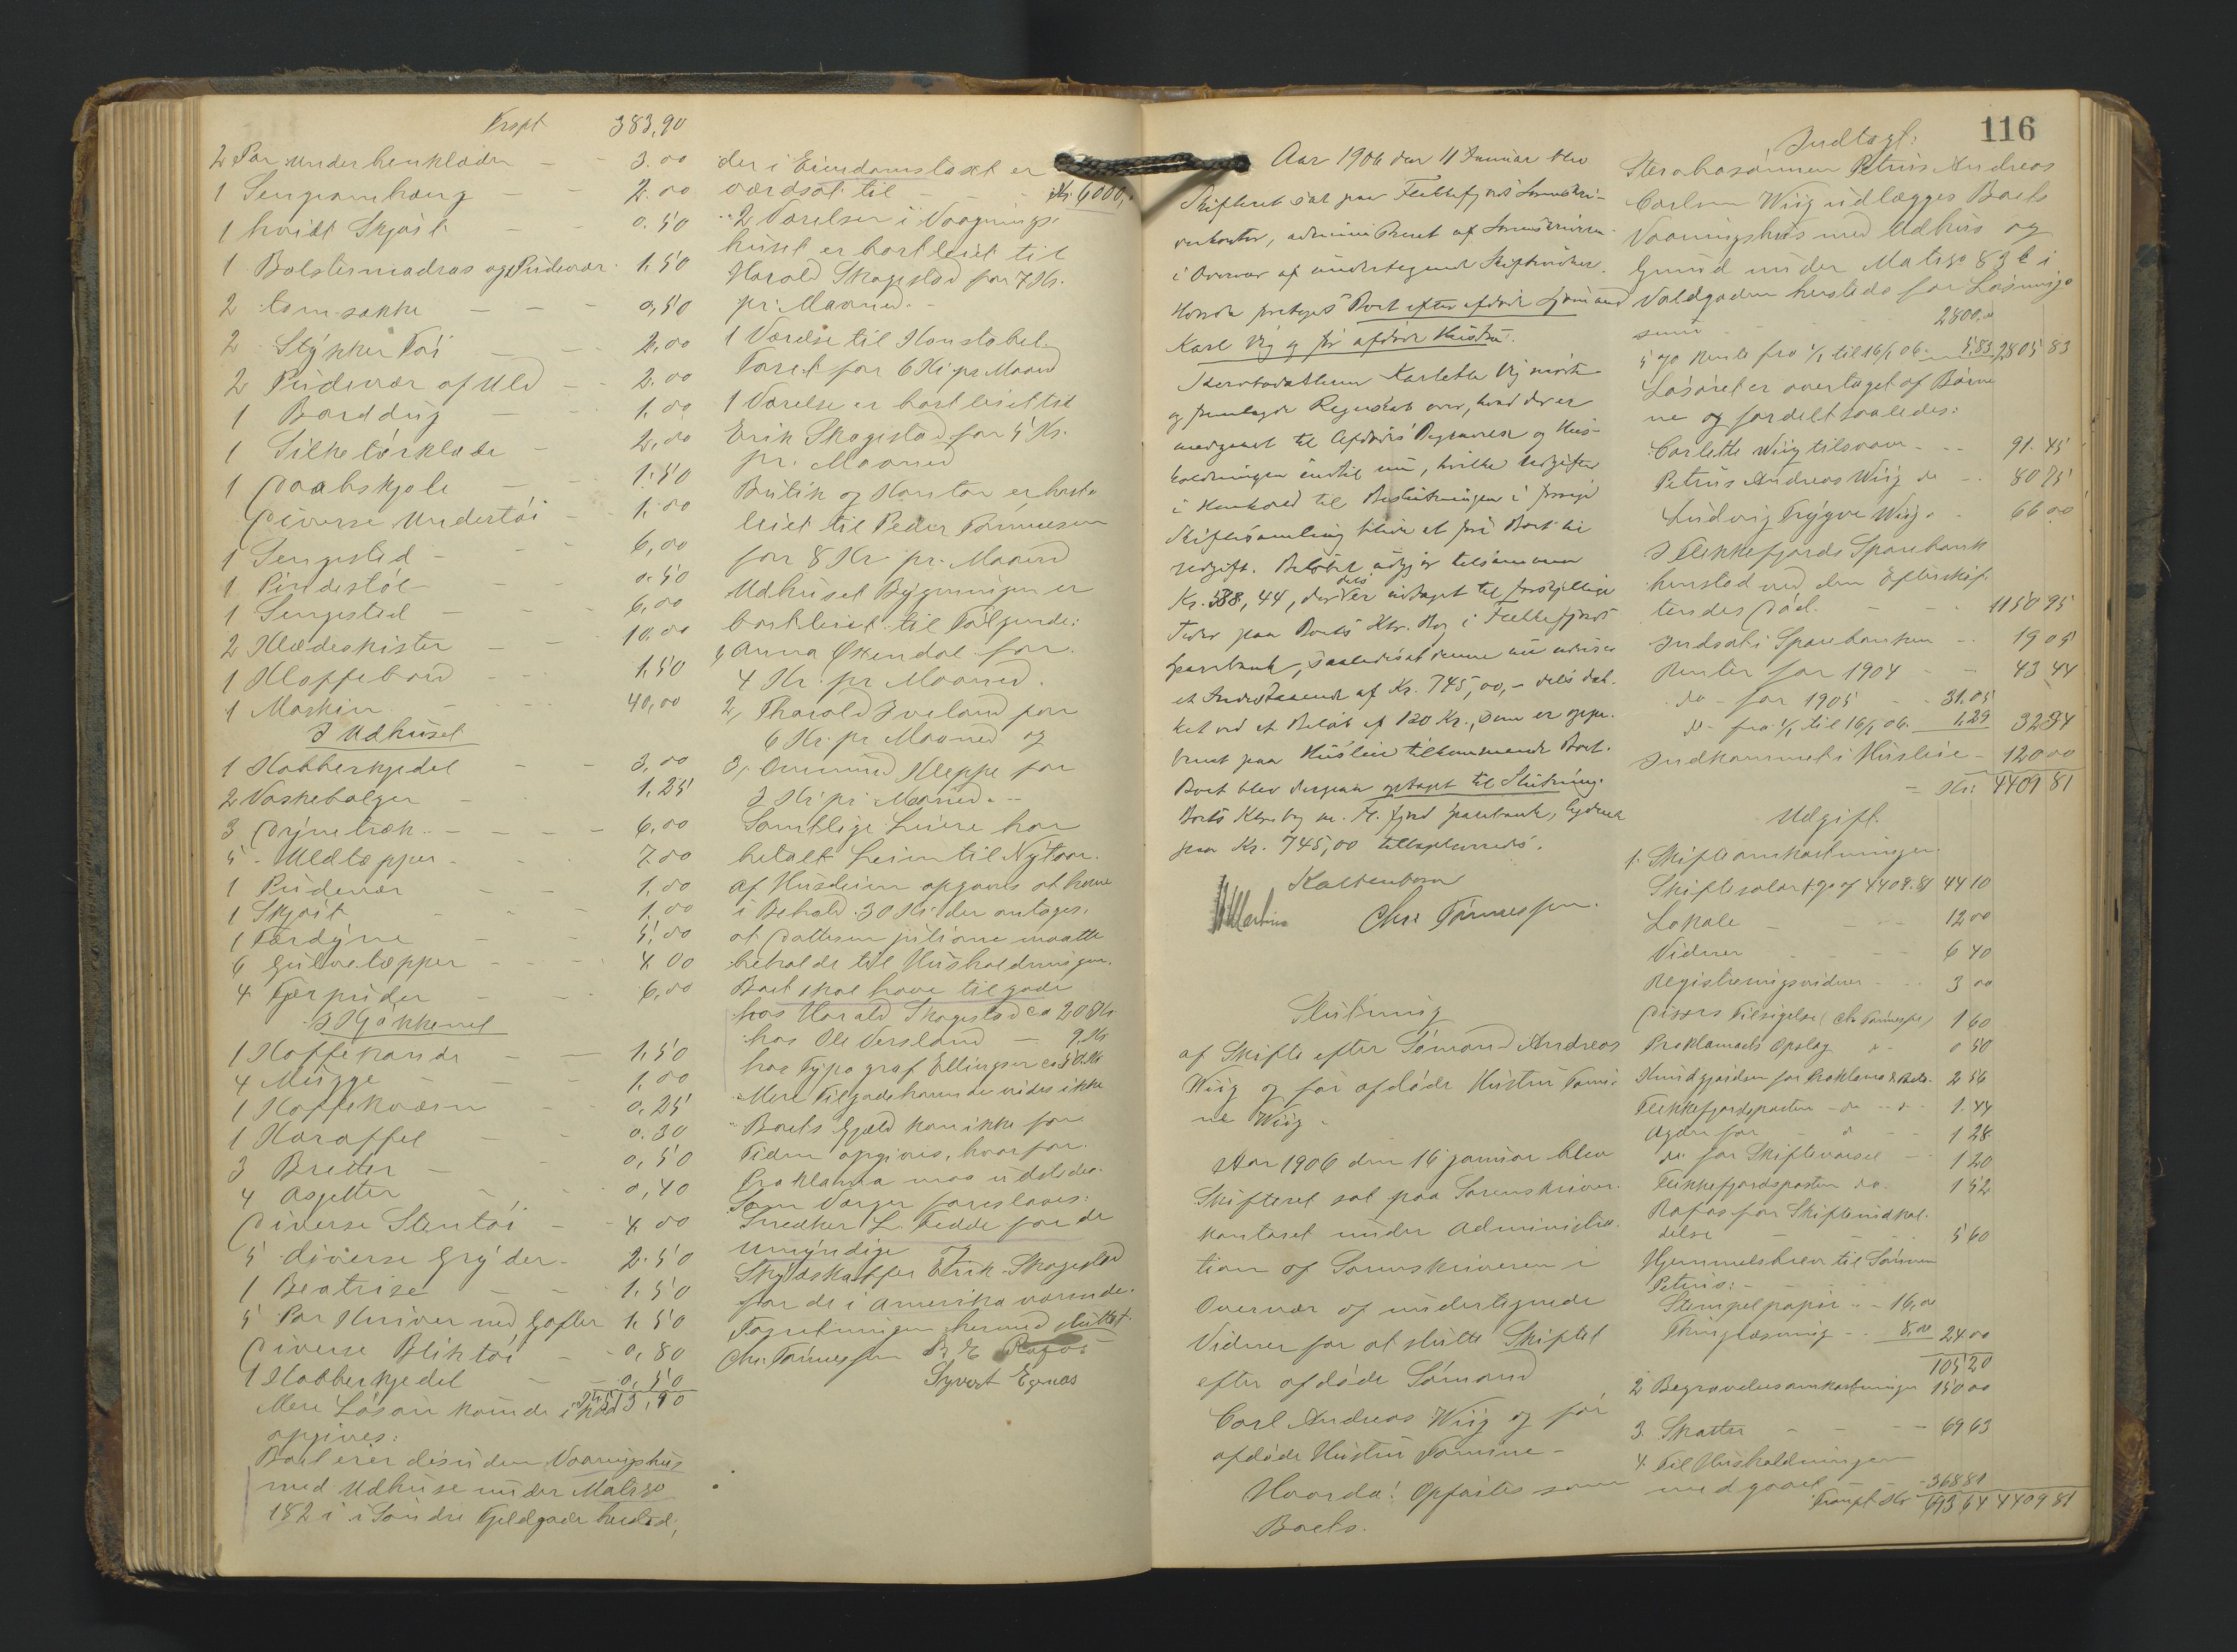 Trspt 383,90
2 Par Underbenklæder - - 3.00
1 Sengeomhæng - - 2.00
1 hvidt Skjørt - - 0.50
1 Bolstermadras og Pudevar 1,50
2 tomsække - - 0,50
2 Stykker Tøi - 2,00
2 Pudevær af Uld - 2.00
1 Borddug - 1,00
1 Silketørklæde - 2,00
1 Daabskjole - 1.50
Diverse Undertøi - 1,00
1 Sengested - - 6,00
1 Pindestol - 0.50
1 Sengested - - 6,00
2 Klædeskister - 10,00
1 Klaffebord - - 1,50
1 Maskin - - 40,00
I Udhuset
1 Kobberkjedel - - 3,00
2 Vaskebaljer - 1,25
3 Dynetræk - - - 6,00
5 - Uldtæpper - 7.00
1 Pudevær - - 1,00
1 Skjørt - - 1.00
1 Færdyne - - 5,00
6 Gulvetæpper - - - 4.00
4 Fjerpuder - - 6,00
I Kjøkkenet
1 Kaffekande - - 1,50
4 Mugge - - 1,00
1 Kaffekværn - - 0,25
1 Karaffel - - 0.30
3 Bretter - - 0,50
4 Asjetter - - 0,40
Diverse Stentøi - - 4.00
5 diverse Gryder - 2.50
1 Beatrise - - 1.50
5 Par Kniver med Gafler 1,50
Diverse Bliktøi - - 0,80
1 Kobberkjedel - - 0,50
Mere Løsøre kunde ikke
opgives:
Boet eier desuden Vaaningshus
med Udhuse under Matr
182 i i Søndre Fjeldgade hersted,
der i Eiendomstaxt er
værdsat til - - Kr. 6000,-
2 Værelser i Vaanings-
huset er bortleiet til
Harald Skogestad for 7 Kr.
pr. Maaned. -
1 Værelse til Konstabel
Toset for 6 Kr pr Maaned
1 Værelse er bortleiet til
Erik Skogestad for 5 Kr.
pr. Maaned
Butik og Kontor er bort-
leiet til Peder Tønnesen
for 8 Kr pr. Maaned
Udhuset Bygningen er
bortleiet til Følgende:
1, Anna Økendal for
4 Kr. pr Maaned.
2, Tharald Iveland for
6 Kr. pr Maaned og
3, Ommund Kleppe for
3 Kr pr Maaned. -
Samtlige Leiere har
betalt Leien til Nytaar.
Af Husleien opgaves at have
i Behold 30 Kr der antages.
at Datteren maatte
beholde til Husholdningen.
Boet skal have tilgode
hos Harald Skogestad ca 20 Kr
hos Ole Versland - 9 Kr
hos Typograf Ellingsen ca 50 Kr
Mere Tilgodehavende vides ikke
Boets Gjæld kan ikke for
Tiden opgives, hvorfor
Proklama maa udstedes.
Som Værger foreslaaes:
Snedker L. Fedde for de
umyndige
Skydskaffer Erik Skogestad
for de i Amerika værende.
Forretningen hermed sluttet.
Chr. Tønnessen
Syvert Egenæs
116
Aar 1906 den 11 Januar blev
Skifteret sat paa Flekkefjords Sorenskri-
verkontor, administreret af Sorenskriveren
i Overvær af undertegnede Skiftevidner.
Hvorda foretoges Boet efter afdøde Sømand
Karl Vig og før afdøde Hustru.
Sterbodatteren Karlette Vig mødte
og fremlagde Regnskab over, hvad der er
medgaaet til Afdødes Begravelse og Hus-
holdningen indtil nu, hvilke Udgifter
i Henhold til Beslutningen i forrige
Skiftesamling blive at føre Boet til
Udgift. Beløbet udgjør tilsammen
Kr. 588,44, der dels er udtaget til forskjellige
Tider paa Boets Ktr. Bog i Flekkefjords
Sparebank, saaledes at denne nu udviser
et Indestaaende af Kr. 745,00, - dels dæk-
ket ved et Beløb af 120 Kr., som er oppe-
baaret paa Husleie tilkommende Boet.
Boet blev derpaa optaget til Slutning.
Boets Ktrabog m. Fl. fjord Sparebank, lydende
paa Kr. 745,00
Kaltenborn
Chr Tønnessen.
Slutning
af Skifte efter Sømand Andreas
Wiig og før afdøde Hustru Tomi-
ne Wiig -
Aar 1906 den 16 januar blev
Skifteret sat paa Sorenskriver-
kontoret under Administra-
tion af Sorenskriveren i
Overvær af undertegnede
Vidner for at slutte Skiftet
efter afdøde Sømand
Carl Andreas Wiig og før
afdøde Hustru Tomine -
Hvorda: Opførtes som
Boets.
Indtægt:
Sterbosønnen Petrus Andreas
Carlsen Wiig udlægges Boets
Vaaningshus med Udhus og
Grund under Matr 83 b i
Voldgaden hersteds for Løsnings-
sum - 2800,00
5 % Rente fra 1/1 til 16/1 06. 5,83 2805 83
Løsøret er overtaget af Børne
ne og fordelt saaledes:
Carlette Wiig tilsvare - - 91.45
Petrus Andreas Wiig do - 80 75
Ludvig Trygve Wiig - 66 00
I Flekkefjords Sparebank
henstod ved den Efterskif-
tendes Død - - 1150 95
Indsat i Sparebanken - 19 05
Renter for 1904 - - 43 44
do - for 1905 - 31.05
do - fra 1/1 til 16/1 06. 1,29 32 34
Indkommet i Husleie - 120 00
- Kr: 4409 81
Udgift.
1. Skifteomkostninger.
Skiftesalar 1 % af 4409.81 44 10
Lokale - - 12 00
Vidner - - - 6 40
Registreringsvidner - - 3 00
Divers Tilsigelse (Chr Tønnessen) 1 60
Proklamaets Opslag do - 0 50
Kundgjørelsen for Proklama 2 56
Flekkefjordsposten - do - - 1.44
Agder for - do - - 1 28
do for Skiftevarsel - - 1 20
Flekkefjordsposten do. 1 52
Rafos for Skifteindkal-
delse - - 5 60
Hjemmelsbrev til Sønnen
Petrus: -
Stempelpapir - - 16,00
Thinglæsning - - 8,00 24.00
105 20
2 Begravelsesomkostninger 150 00
3. Skatter - - - 69 63
4. Til Husholdningen
medgaaet - - 368 81
Transpt Kr 693 64 4409 81